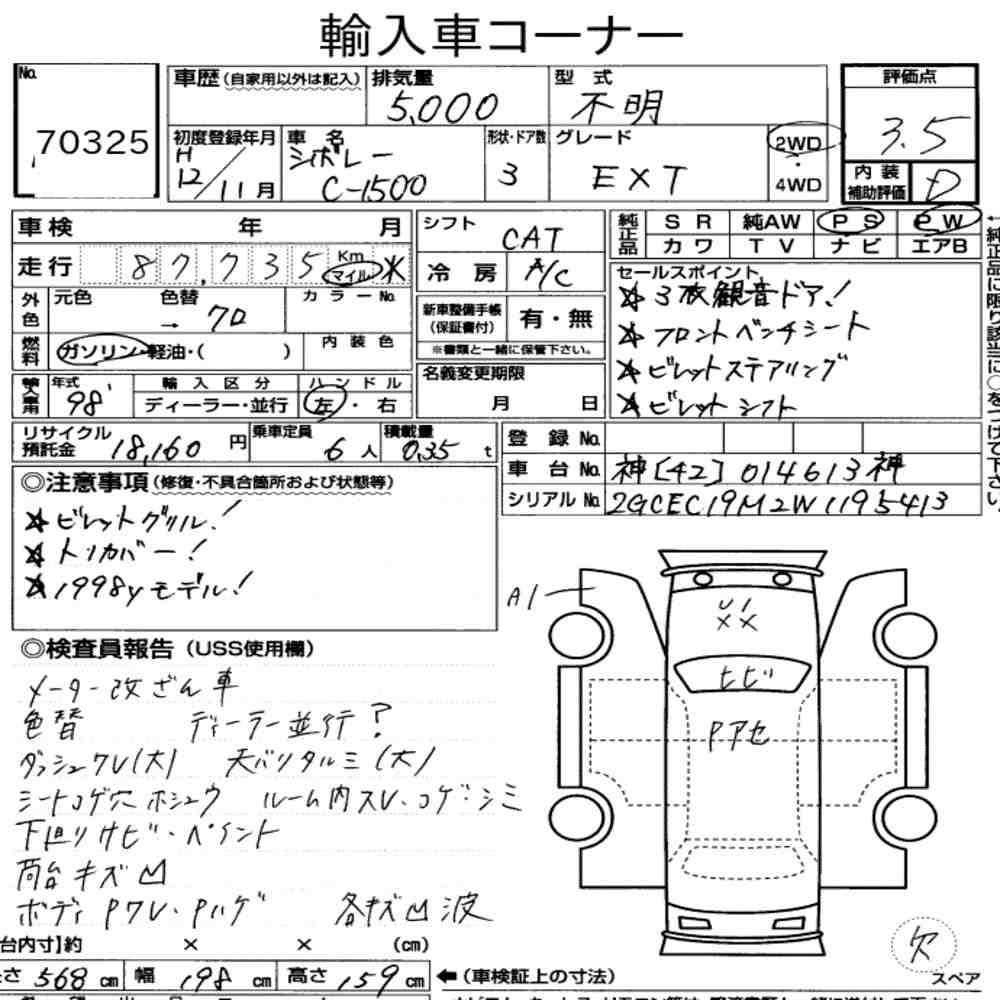 輸入車コーナー
No.
70325
車歴(自家用以外は記入)
排気量
5,000
型式
不明
評価点
3.5
初度登録年月
H 12/11月
車名
シボレー
C-1500
形状・ドア数
3
グレード
EXT
2WD
・
4WD
内装
補助評価
D
車検 年 月
シフト
CAT
純正品
SR 純AW PS PW
カワ TV ナビ エアB
走行 87,735 Km マイル *
冷房 A/C
セールスポイント
☆3枚観音ドア!
☆フロントベンチシート
☆ビレットステアリング
☆ビレットシフト
外色
元色 色替 カラーNo.
→ 70
新車整備手帳
(保証書付)
有・無
※書類と一緒に保管下さい。
燃料
ガソリン・軽油・( )
内装色
名義変更期限
月 日
年式
98'
輸入区分
ディーラー・並行
ハンドル
左・右
リサイクル
預託金
18,160円
乗車定員
6人
積載量
0.35t
登録No.
車台No. 神[42]014613神
シリアルNo. 2GCEC19M2W1195413
◎注意事項(修復・不具合箇所および状態等)
☆ビレットグリル!
☆トノカバー!
☆1998yモデル!
◎検査員報告(USS使用欄)
メーター改ざん車
色替 ディーラー並行?
ダッシュワレ(大) 天バリタルミ(大)
シートコゲ穴ホシュウ ルーム内スレ・コゲ・シミ
下廻りサビ・ペイント
荷台キズ凹
ボディPワレ・Pハゲ 各キズ凹波
A1
U1
××
ヒビ
Pアセ
欠
スペア
台内寸]約 × × (cm)
568cm 幅 198cm 高さ 159cm
←(車検証上の寸法)